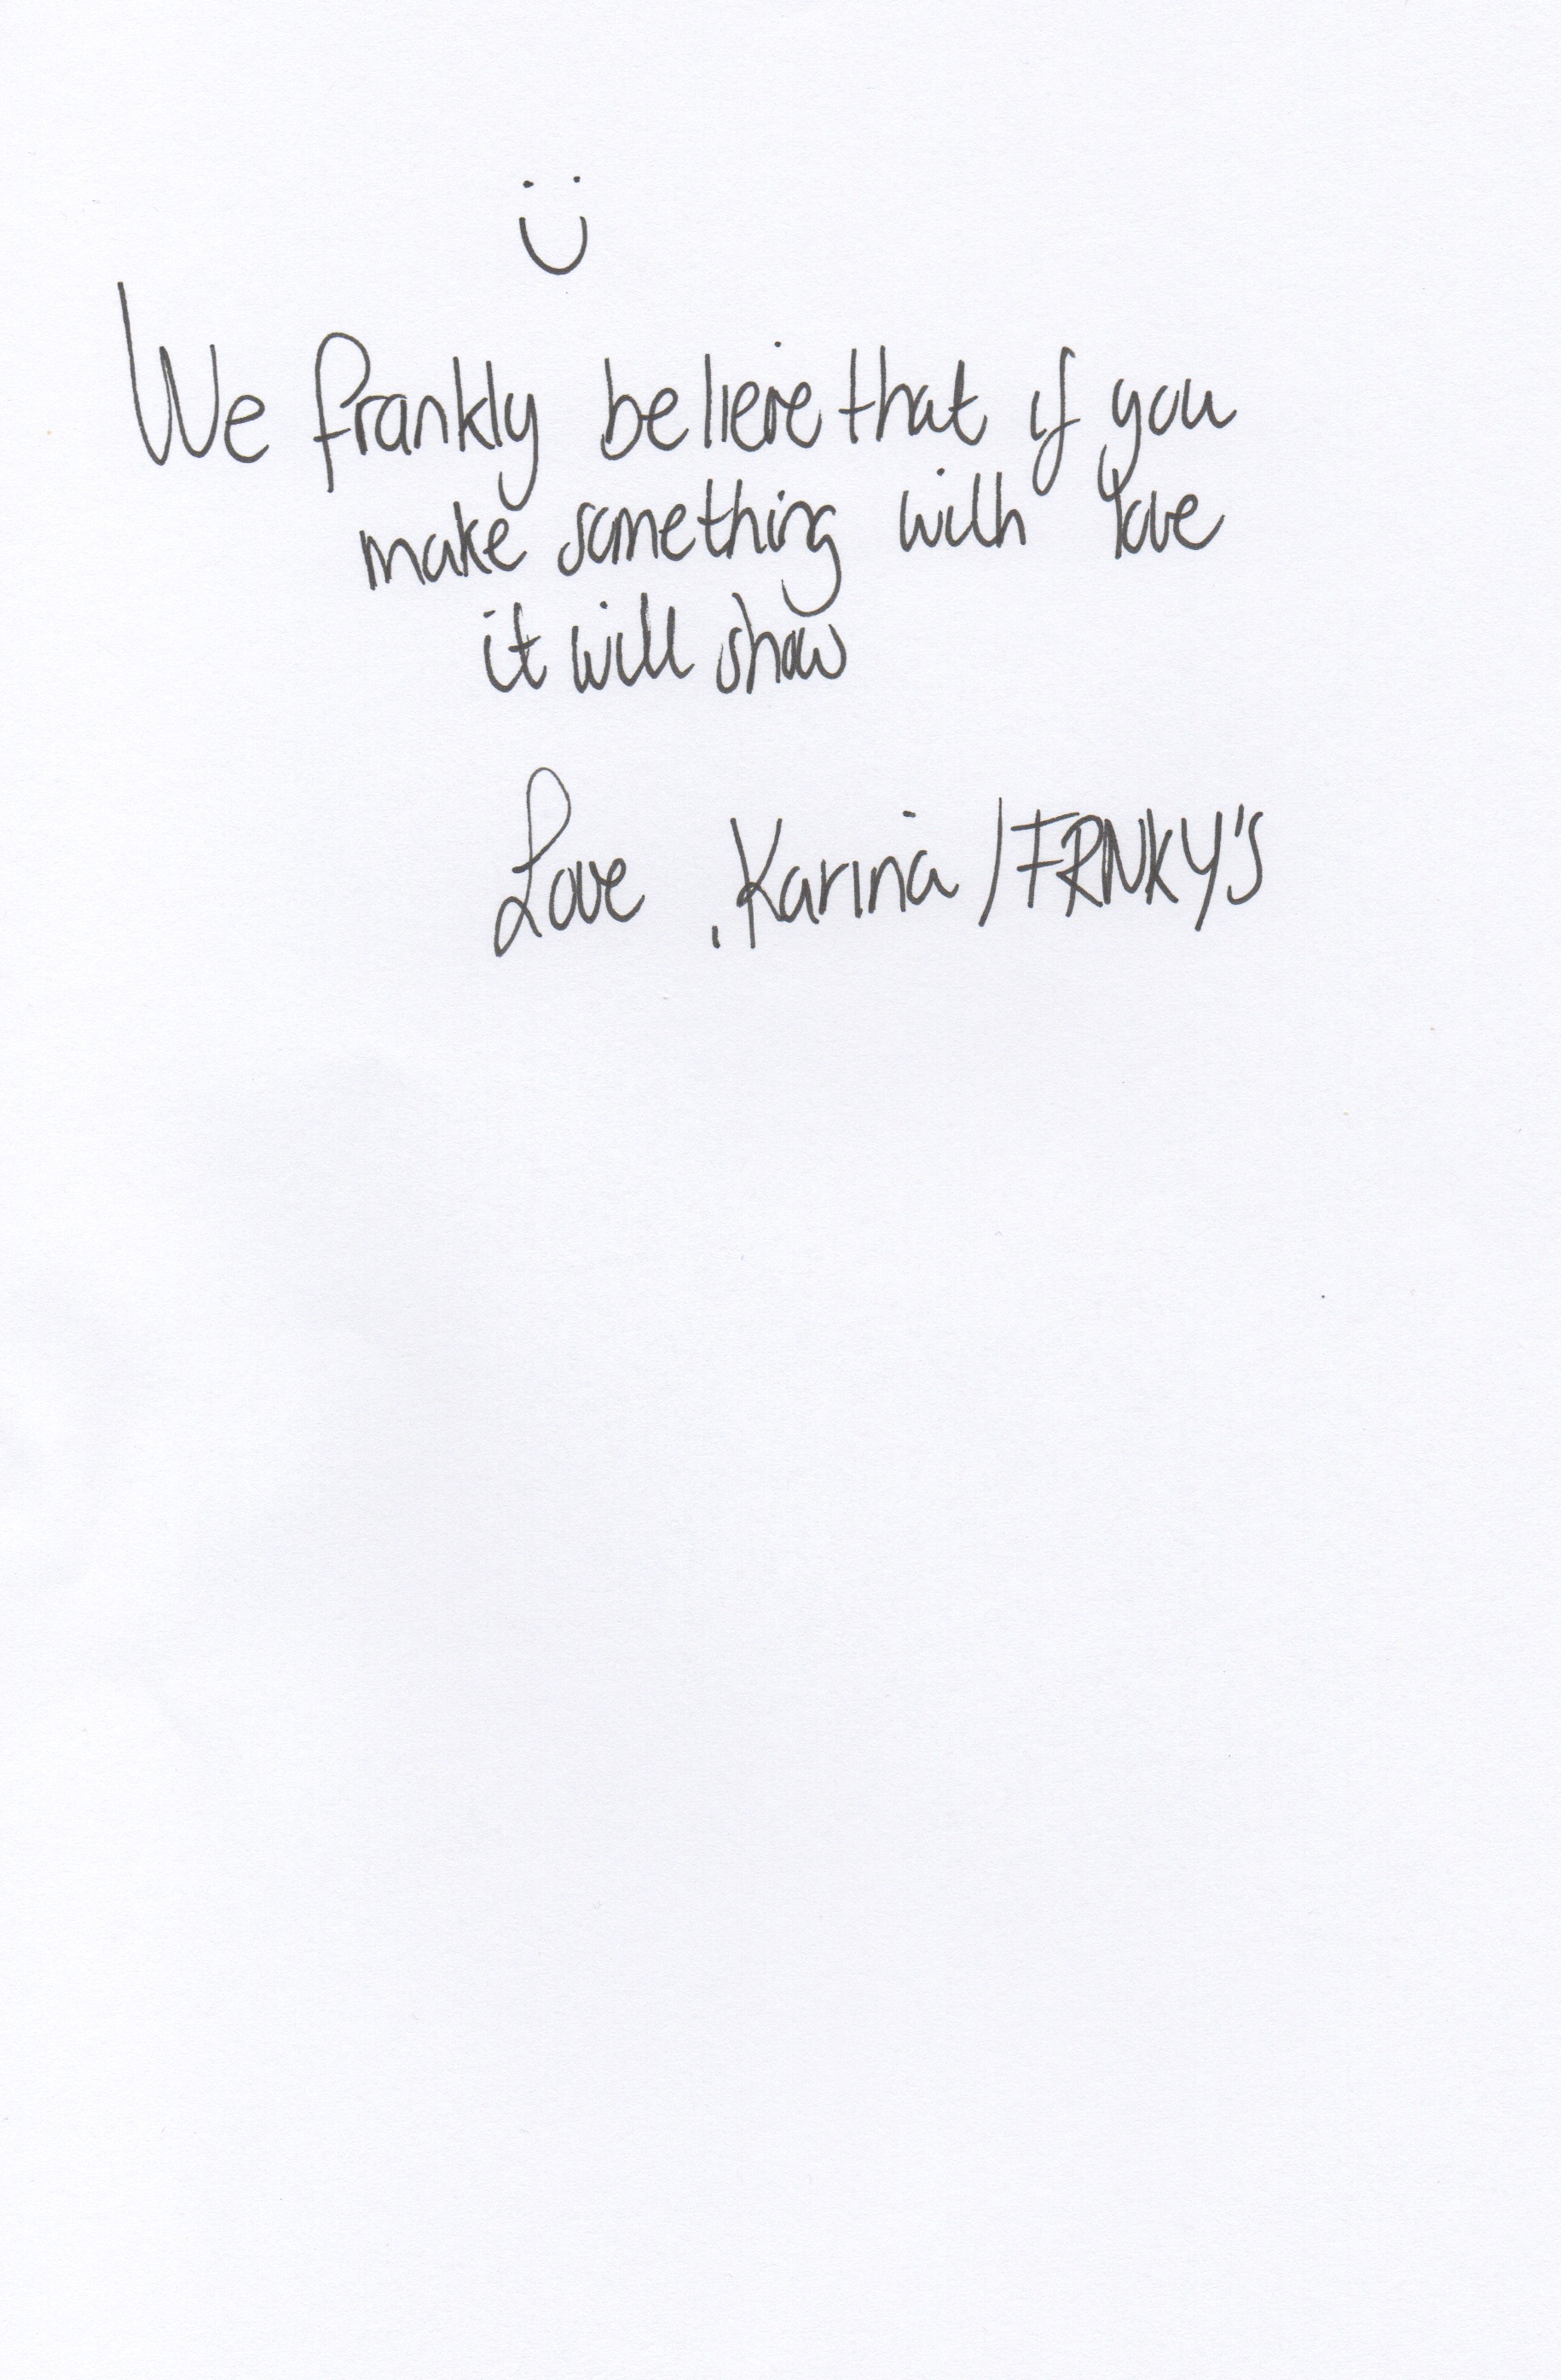 We frankly believe that if you
make something with love
it will show
Love, Karina / FRNKY'S